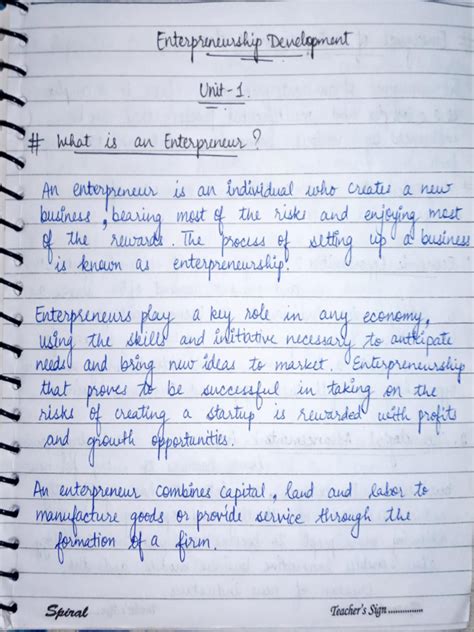 Enterpreneurship Development
Unit-1.
# What is an Enterpreneur?
An enterpreneur is an individual who creates a new
business, bearing most of the risks and enjoying most
of the rewards. The process of setting up a business
is known as enterpreneurship.
Enterpreneurs play a key role in any economy,
using the skills and initiative necessary to anticipate
needs and bring new ideas to market. Enterpreneurship
that proves to be successful in taking on the
risks of creating a startup is rewarded with profits
and growth opportunities.
An enterpreneur combines capital, land and labor to
manufacture goods or provide service through the
formation of a firm.
Spiral
Teacher's Sign..............